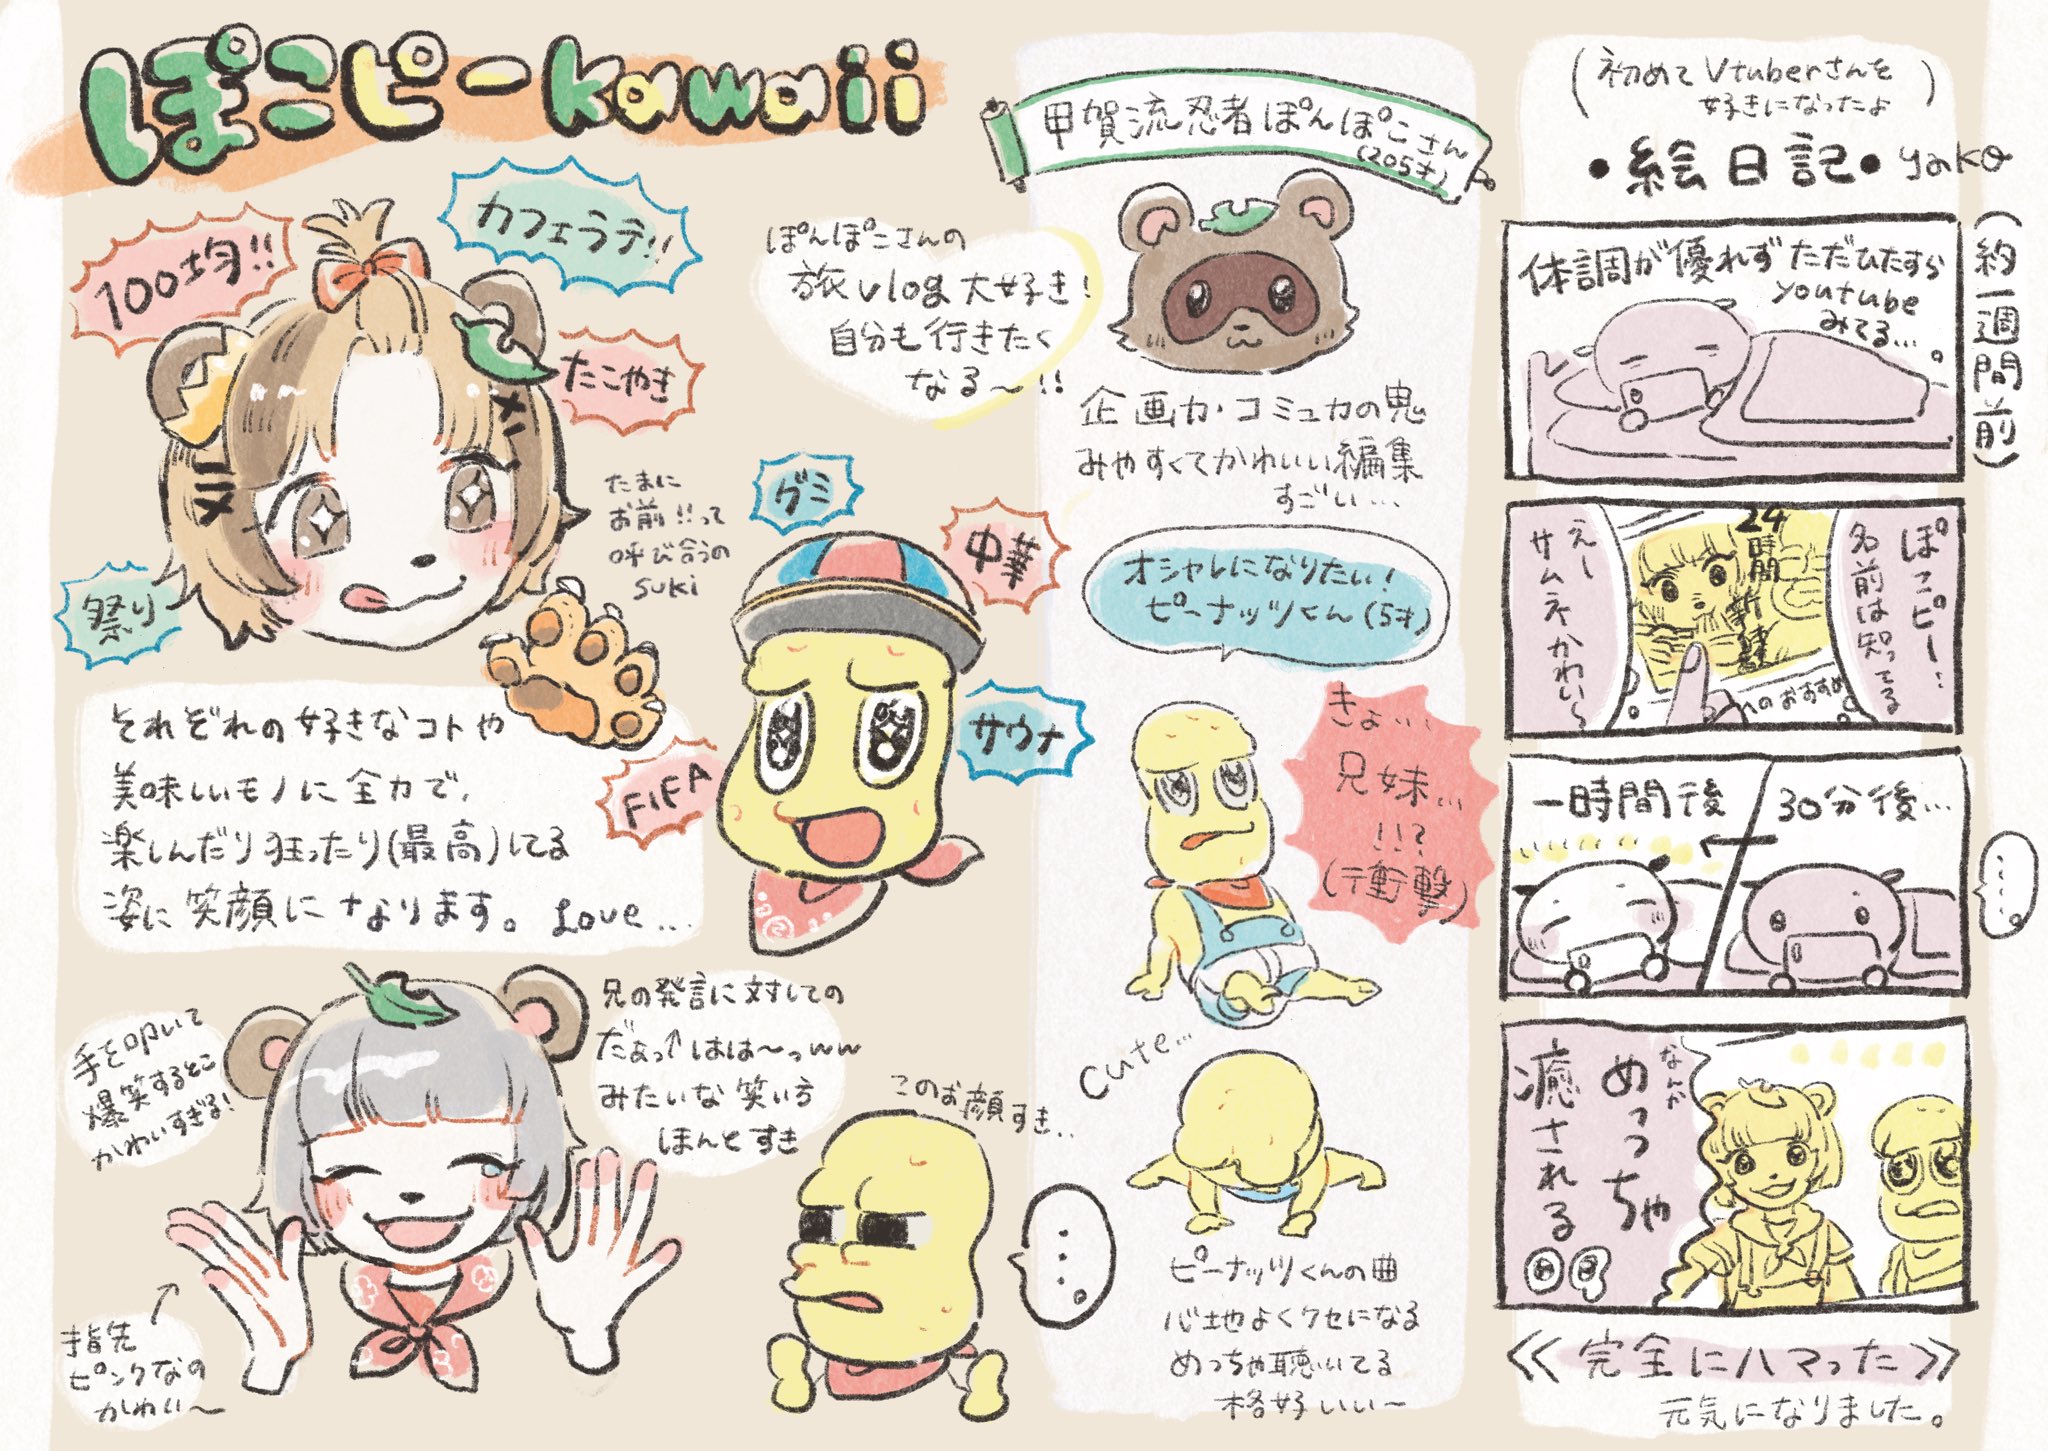 ぽこピーkawaii
100均!!
カフェラテ!!
たこやき
祭り
たまに
お前!!って
呼び合うの
suki
グミ
中華
サウナ
FIFA
それぞれの好きなコトや
美味しいモノに全力で、
楽しんだり狂ったり(最高)してる
姿に笑顔になります。Love...
手を叩いて
爆笑するとこ
かわいすぎる!
兄の発言に対しての
だぁっ↑はは〜っww
みたいな笑い方
ほんとすき
指先
ピンクなの
かわい〜
このお顔すき..
....
甲賀流忍者ぽんぽこさん
(205才)
ぽんぽこさんの
旅vlog大好き!
自分も行きたく
なる〜!!
企画力・コミュ力の鬼
みやすくてかわいい編集
すごい...
オシャレになりたい!
ピーナッツくん(5才)
きょ...
兄妹...
!!?
(衝撃)
cute...
ピーナッツくんの曲
心地よくクセになる
めっちゃ聴いてる
格好いい〜
(初めてVtuberさんを
好きになったよ)
・絵日記・yako
(約一週間前)
体調が優れずただひたすら
youtube
みてる...
ぽこピー...
名前は知ってる
24時間
えー
サムネかわいい〜
へのおすすめ
30分後...
一時間後
.....
なんか
めっっちゃ
癒される
≪完全にハマった≫
元気になりました。